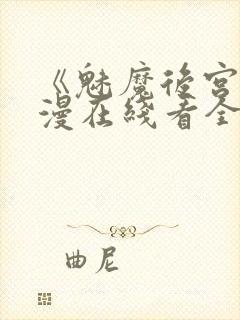 《魅魔後宮
漫在綫看全
曲尼